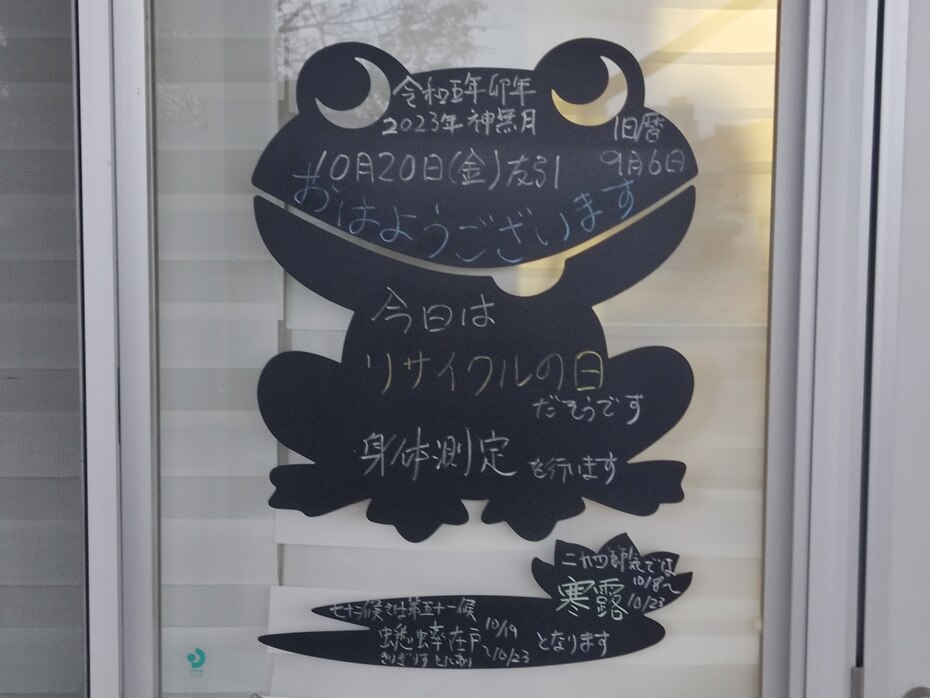 令和五年卯年
2023年神無月
旧暦
10月20日(金)友引
9月6日
おはようございます
今日は
リサイクルの日
だそうです
身体測定を行います
二十四節気では
寒露
10/8〜
10/23
七十二候では第五十一候
蟋蟀在戸
10/19
〜10/23
となります